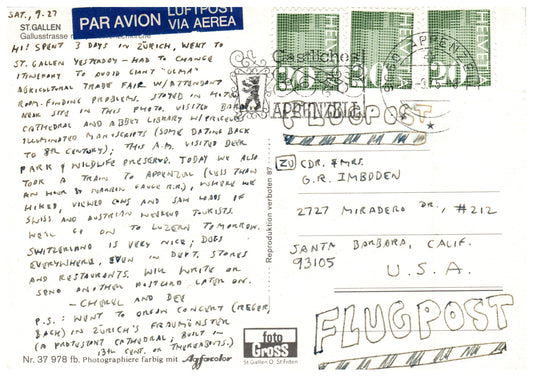 SAT., 9-27
ST. GALLEN
Gallusstrasse
PAR AVION
LUFTPOST
VIA AEREA
HI! SPENT 3 DAYS IN ZÜRICH, WENT TO
ST. GALLEN YESTERDAY - HAD TO CHANGE
ITINERARY TO AVOID GIANT "OLMA"
AGRICULTURAL TRADE FAIR W/ATTENDANT
ROOM-FINDING PROBLEMS. STAYED IN HOTEL
NEAR SITE IN THIS PHOTO. VISITED
CATHEDRAL AND ABBEY LIBRARY W/PRICELESS
ILLUMINATED MANUSCRIPTS (SOME DATING BACK
TO 8TH CENTURY); THIS A.M. VISITED DEER
PARK & WILDLIFE PRESERVE. TODAY WE ALSO
TOOK A TRAIN TO APPENZELL (LESS THAN
AN HOUR BY NARROW GAUGE R.R.), WHERE WE
HIKED, VIEWED COWS AND SAW LOADS OF
SWISS AND AUSTRIAN WEEKEND TOURISTS.
WE'LL GO ON TO LUZERN TOMORROW.
SWITZERLAND IS VERY NICE; DOGS
EVERYWHERE, EVEN IN DEPT. STORES
AND RESTAURANTS. WILL WRITE OR
SEND ANOTHER POSTCARD LATER ON.
- CHERYL AND DEE
P.S.: WENT TO ORGAN CONCERT (REGER,
BACH) IN ZÜRICH'S FRAUMÜNSTER
(A PROTESTANT CATHEDRAL, BUILT IN
13TH CENT. OR THEREABOUTS.)
Nr. 37 978 fb. Photographiere farbig mit Agfacolor
Reproduktion verboten 87
foto
Gross
St. Gallen
HELVETIA
HELVETIA
HELVETIA
30
30
20
Gastliches
APPENZELL
APPENZELL
FLUGPOST
ZU CDR. & MRS.
G.R. IMBODEN
2727 MIRADERO DR., #212
SANTA BARBARA, CALIF.
93105
U.S.A.
FLUGPOST